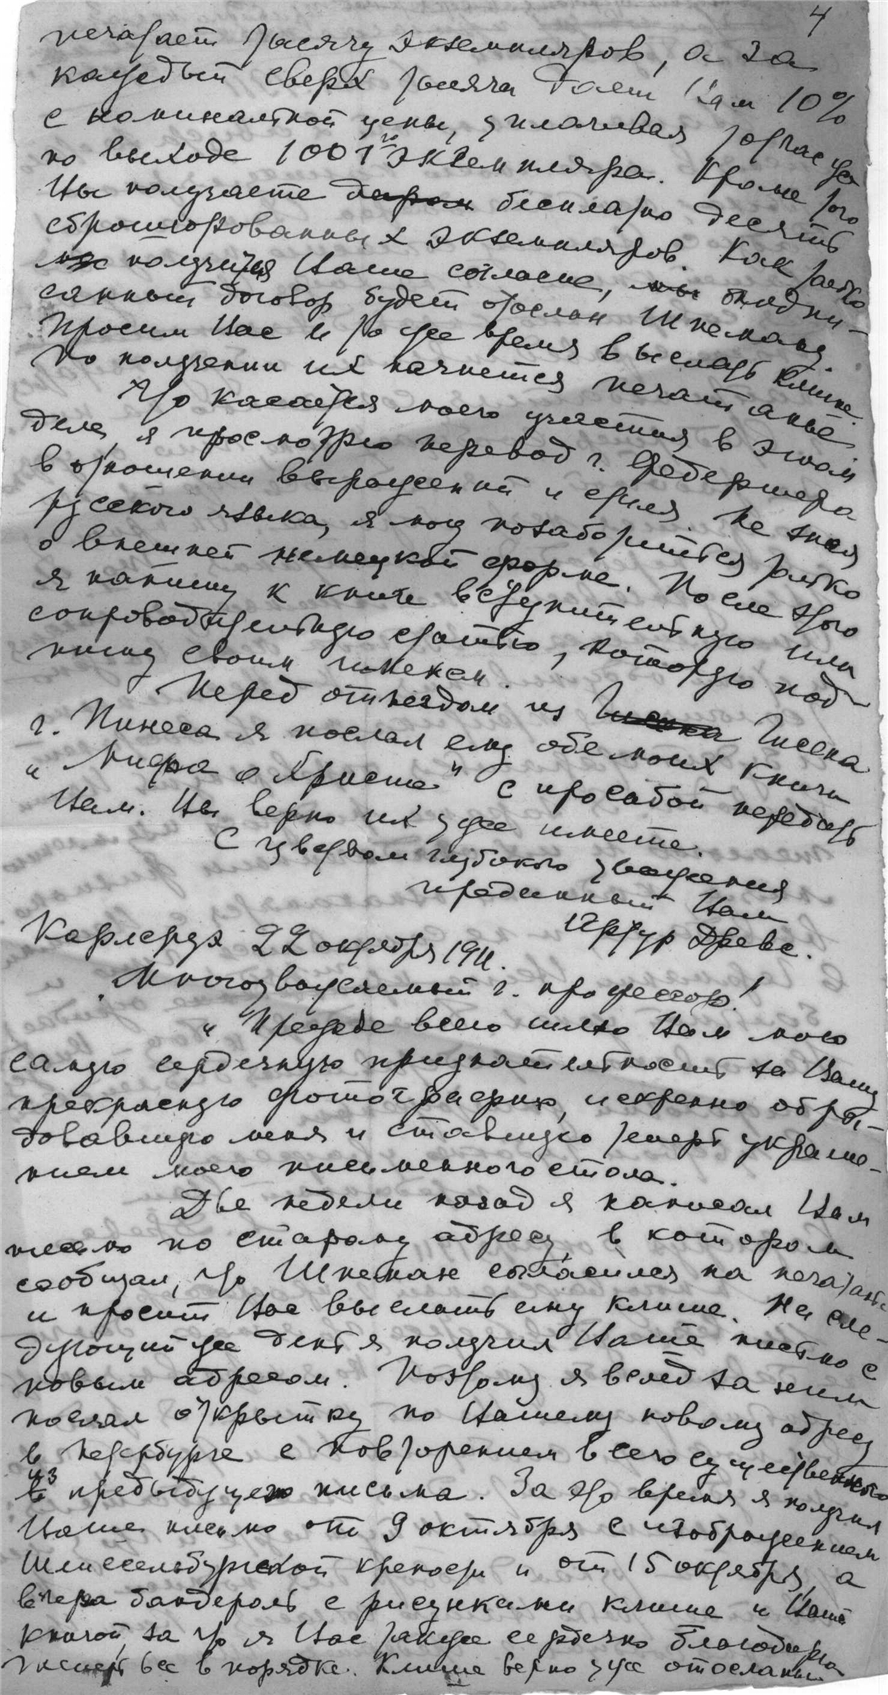 4
печатает тысячу экземпляров, а за
каждый сверх тысячи дает Вам 10%
с номинальной цены, уплачивая тотчас же
по выходе 1001го экземпляра. Кроме того
Вы получаете даром бесплатно десять
сброшюрованных экземпляров. Как только
получится Ваше согласие, мы подпи-
санный договор будет отослан Шпеману.
Просим Вас в то же время выслать клише.
По получении их начнется печатание.
Что касается моего участия в этом
деле, я просмотрю перевод г.
в отношении выражений и стиля. Не зная
русского языка, я могу позаботиться только
о внешней немецкой форме. После этого
я напишу к книге вступительную или
сопроводительную статью, которую под-
пишу своим именем.
Перед отъездом из Гисена
г. Пинеса я послал ему обе моих книги
"Мифа о Христе" с просьбой передать
Вам. Вы верно их уже имеете.
С чувством глубокого уважения
преданный Вам
Артур Древс.
Карлсруэ 22 октября 1911.
Многоуважаемый г. профессор!
"Прежде всего шлю Вам мою
самую сердечную признательность за Вашу
прекрасную фотографию, искренно обра-
довавшую меня и ставшую теперь украше-
нием моего письменного стола.
Две недели назад я написал Вам
письмо по старому адресу, в котором
сообщал, что Шпеман согласился на печатание
и просит Вас выслать ему клише. На сле-
дующий же день я получил Ваше письмо с
новым адресом. Поэтому я вслед за ним
послал открытку по Вашему новому адресу
в Петербурге с повторением всего существенного
из предыдущего письма. За это время я получил
Ваше письмо от 9 октября с изображением
Шлиссельбургской крепости и от 15 октября, а
вчера бандероль с рисунками клише и Вашей
книгой, за что я Вас также сердечно благодарю
Теперь все в порядке. Клише верно уже отосланы.